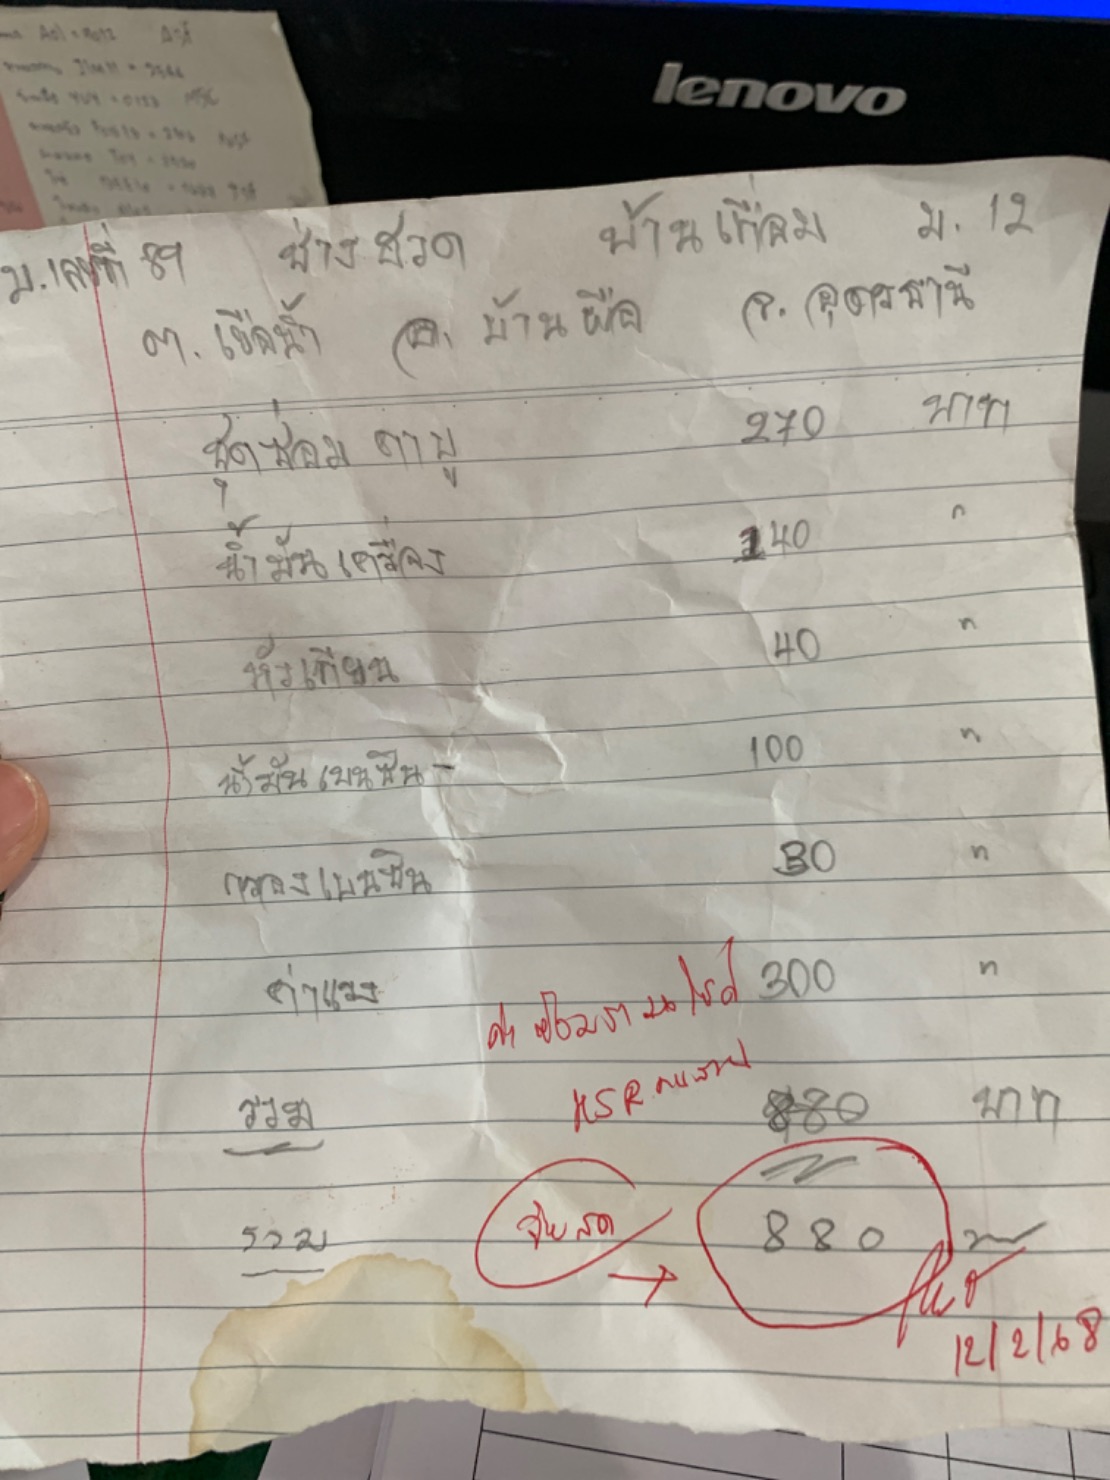 lenovo
บ.เลขที่ 89 ช่างชวด บ้านเทื่อม ม. 12
ต. เขือน้ำ อ. บ้านผือ จ. อุดรธานี
ชุดซ่อม คาบู 270 บาท
น้ำมันเครื่อง 140 "
หัวเทียน 40 "
น้ำมันเบนซิน - 100 "
กรองเบนซิน 30 "
ค่าแรง 300 "
ค่าซ่อมรถมอไซด์
HSR
รวม 880 บาท
รวม เงินสด → 880
12/2/68